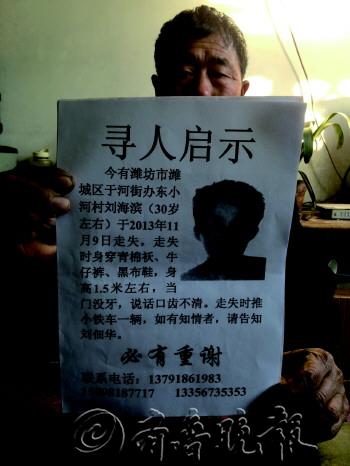 寻人启示
今有潍坊市潍
城区于河街办东小
河村刘海滨（30岁
左右）于2013年11
月9日走失。走失
时身穿青棉袄、牛
仔裤、黑布鞋，身
高1.5米左右，当
门没牙，说话口齿不清。走失时推
小铁车一辆，如有知情者，请告知
刘佃华。
必有重谢
联系电话：13791861983
13356735353
齐鲁晚报